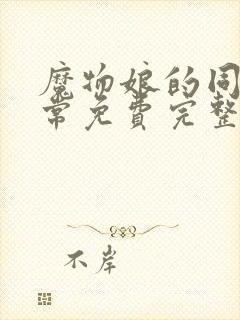 魔物娘的同
常免费完整
不岸